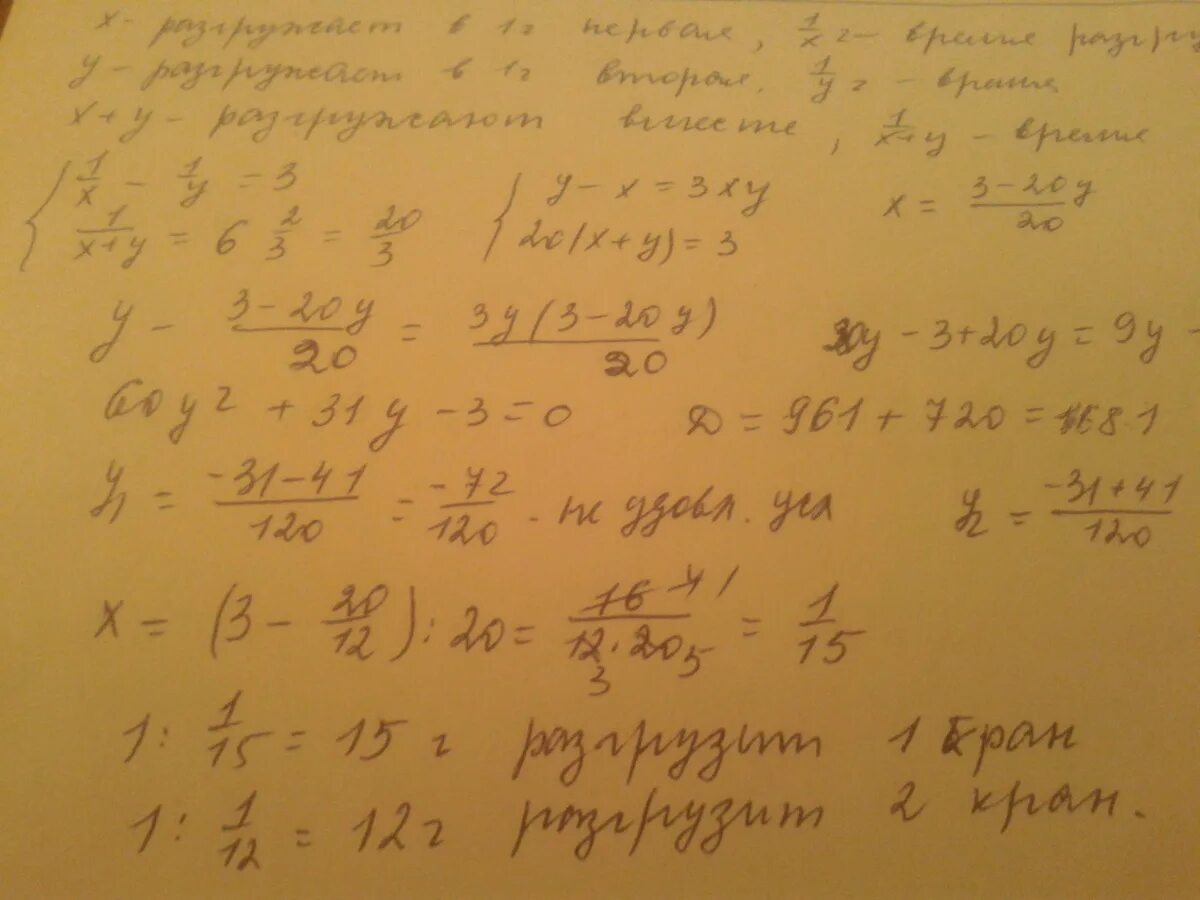 x - разгружает в 1г первая, 1/x г - время разгру
y - разгружает в 1г вторая. 1/y г - время
x+y - разгружают вместе, 1/x+y - время
{ 1/x - 1/y = 3 { y - x = 3xy x = (3-20y)/20
1/(x+y) = 6 2/3 = 20/3 20(x+y) = 3
y - (3-20y)/20 = 3y(3-20y)/20 20y - 3+20y = 9y -
60y² + 31y - 3 = 0 D = 961 + 720 = 1681
y₁ = (-31-41)/120 = -72/120 - не удовл. усл y₂ = (-31+41)/120
x = (3 - 20/12) : 20 = 16 4 1/12·20 3 5 = 1/15
1 : 1/15 = 15 г разгрузит 1 кран
1 : 1/12 = 12г разгрузит 2 кран.